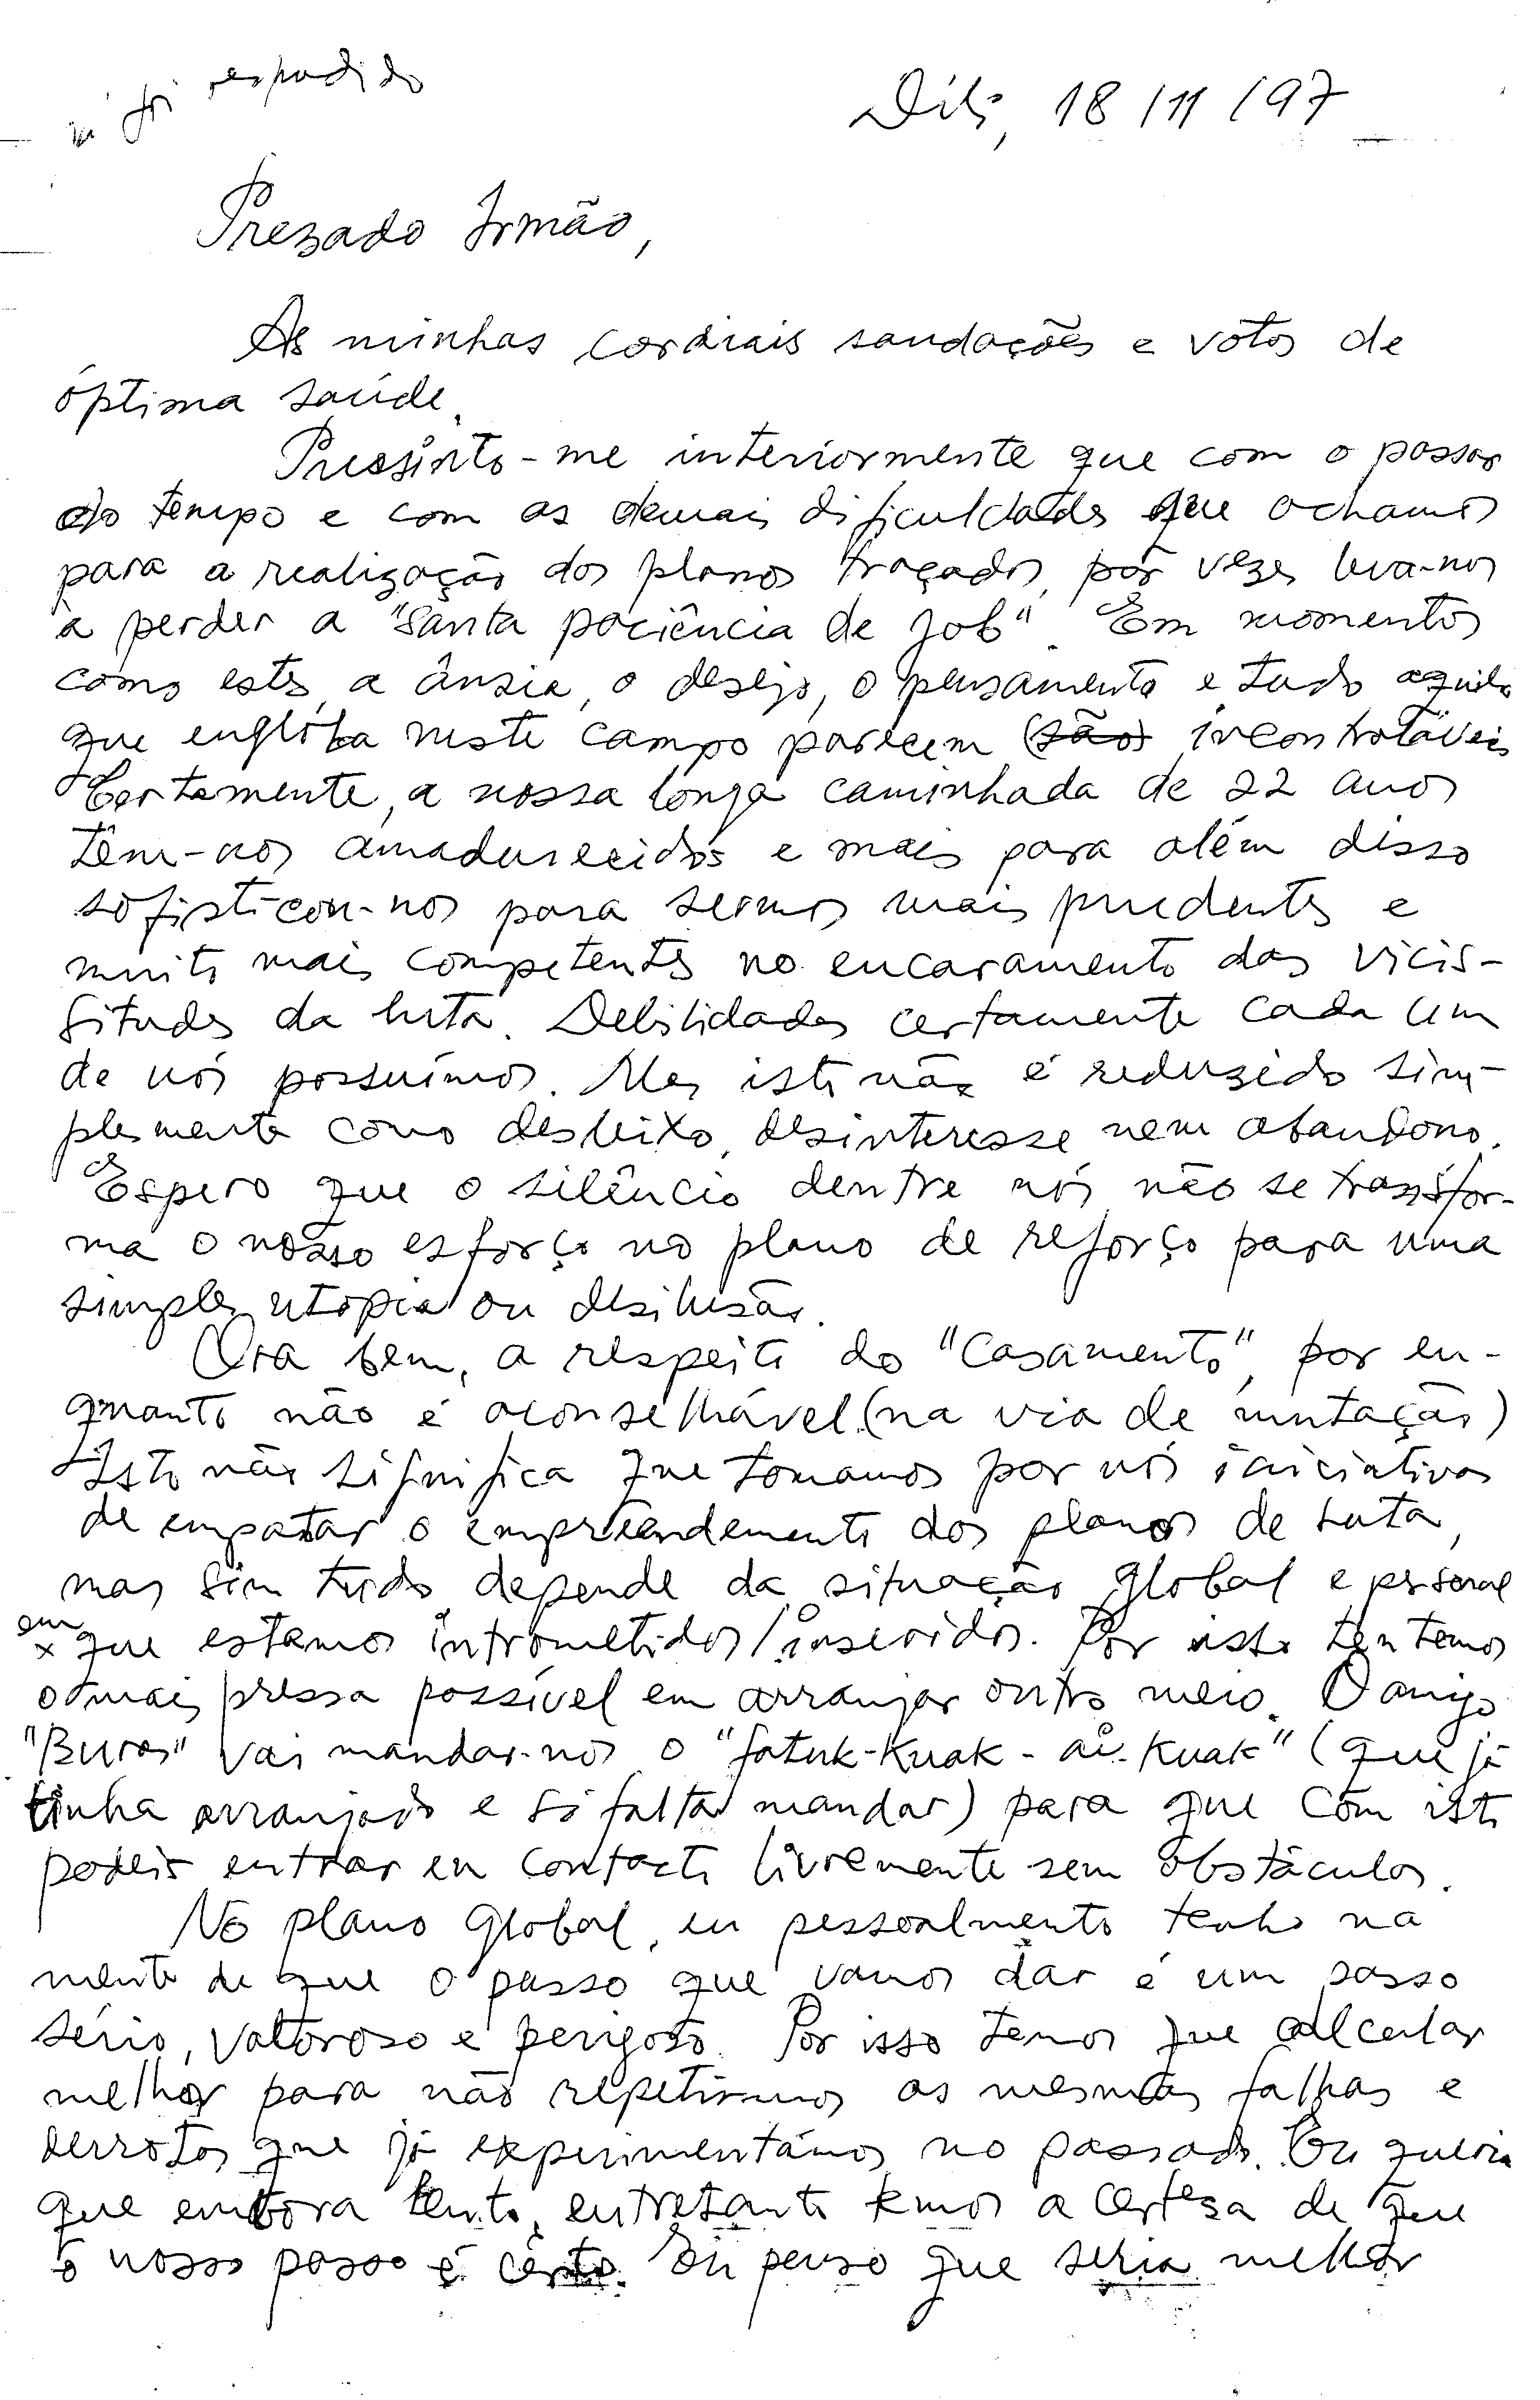 foi espadido
Dili, 18/11/97
Prezado Irmão,
As minhas cordiais saudações e votos de
óptima saúde.
Pressinto-me interiormente que com o passar
do tempo e com as demais dificuldades que achamos
para a realização dos planos traçados, por vezes leva-nos
a perder a "Santa paciência de Job". Em momentos
como estes, a ânsia, o desejo, o pensamento e tudo aquilo
que englóba neste campo parecem (são) incontroláveis
Certamente, a nossa longa caminhada de 22 anos
têm-nos amadurecidos e mais para além disso
sofisticou-nos para sermos mais prudentes e
muito mais competentes no encaramento das vicis-
situdes da luta. Debilidades certamente cada um
de nós possuímos. Mas isto não é reduzido sim-
plesmente como desleixo, desinteresse nem abandono.
Espero que o silêncio dentre nós não se transfor-
ma o nosso esforço no plano de reforço para uma
simples utopia ou desilusão.
Ora bem, a respeito do "Casamento", por en-
quanto não é aconselhável (na via de mutação)
Isto não significa que tomamos por nós iniciativas
de empatar o empreendemento dos planos de luta,
mas sim tudo depende da situação global e pessoal
em
x que estamos intrometidos/inseridos. Por isso tentemos
o mais pressa possível em arranjar outro meio. O amigo
"Buras" vai mandar-nos o "fatuk-Kuak-ai-Kuak" (que já
tinha arranjado e só falta mandar) para que com isto
podeis entrar en contacto livremente sem obstáculos.
No plano global, eu pessoalmento tenho na
mente de que o passo que vamos dar é um passo
sério, valoroso e perigoso. Por isso temos que calcular
melhor para não repetirmos as mesmas falhas e
derrotas que já experimentámos no passado. Eu queria
que embora lento, entretanto temos a certesa de que
o nosso passo é certo. Eu penso que seria melhor